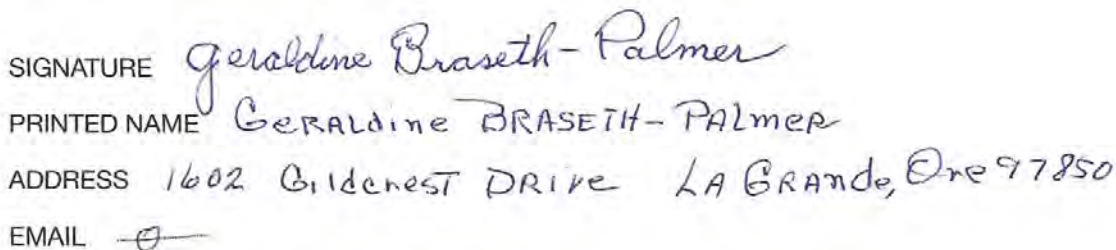 SIGNATURE Geraldine Braseth-Palmer
PRINTED NAME GERALdine BRASETH-PALmeR
ADDRESS 1602 GildcresT DRive LA GRAnde, Ore 97850
EMAIL